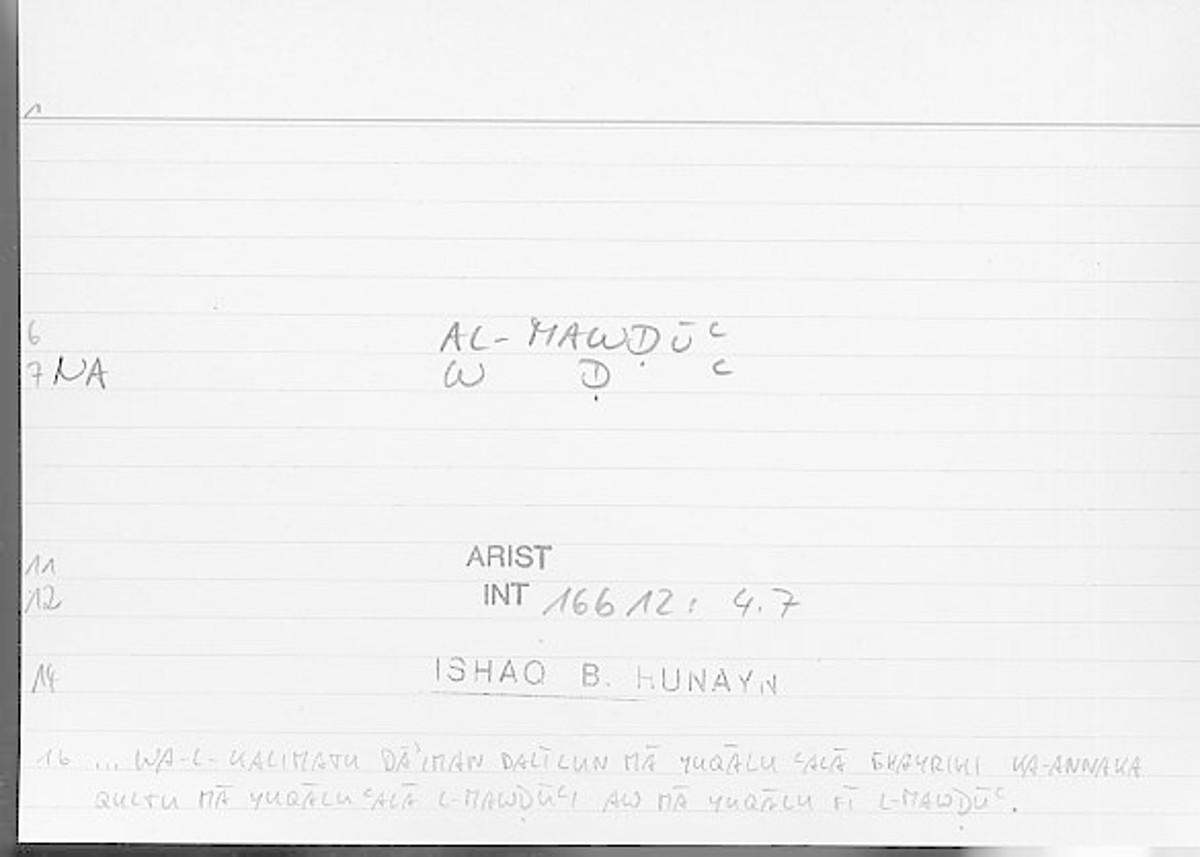 1
6 AL-MAWḌŪʿ
7 NA W Ḍ ʿ
11 ARIST
12 INT 16612: 4.7
14 ISHAQ B. HUNAYN
16 ... WA-L-KALIMATU DĀʾIMAN DALĪLUN MĀ YUQĀLU ʿALĀ GHAYRIHI KA-ANNAKA
QULTU MĀ YUQĀLU ʿALĀ L-MAWḌŪʿI AW MĀ YUQĀLU FĪ L-MAWḌŪʿ.